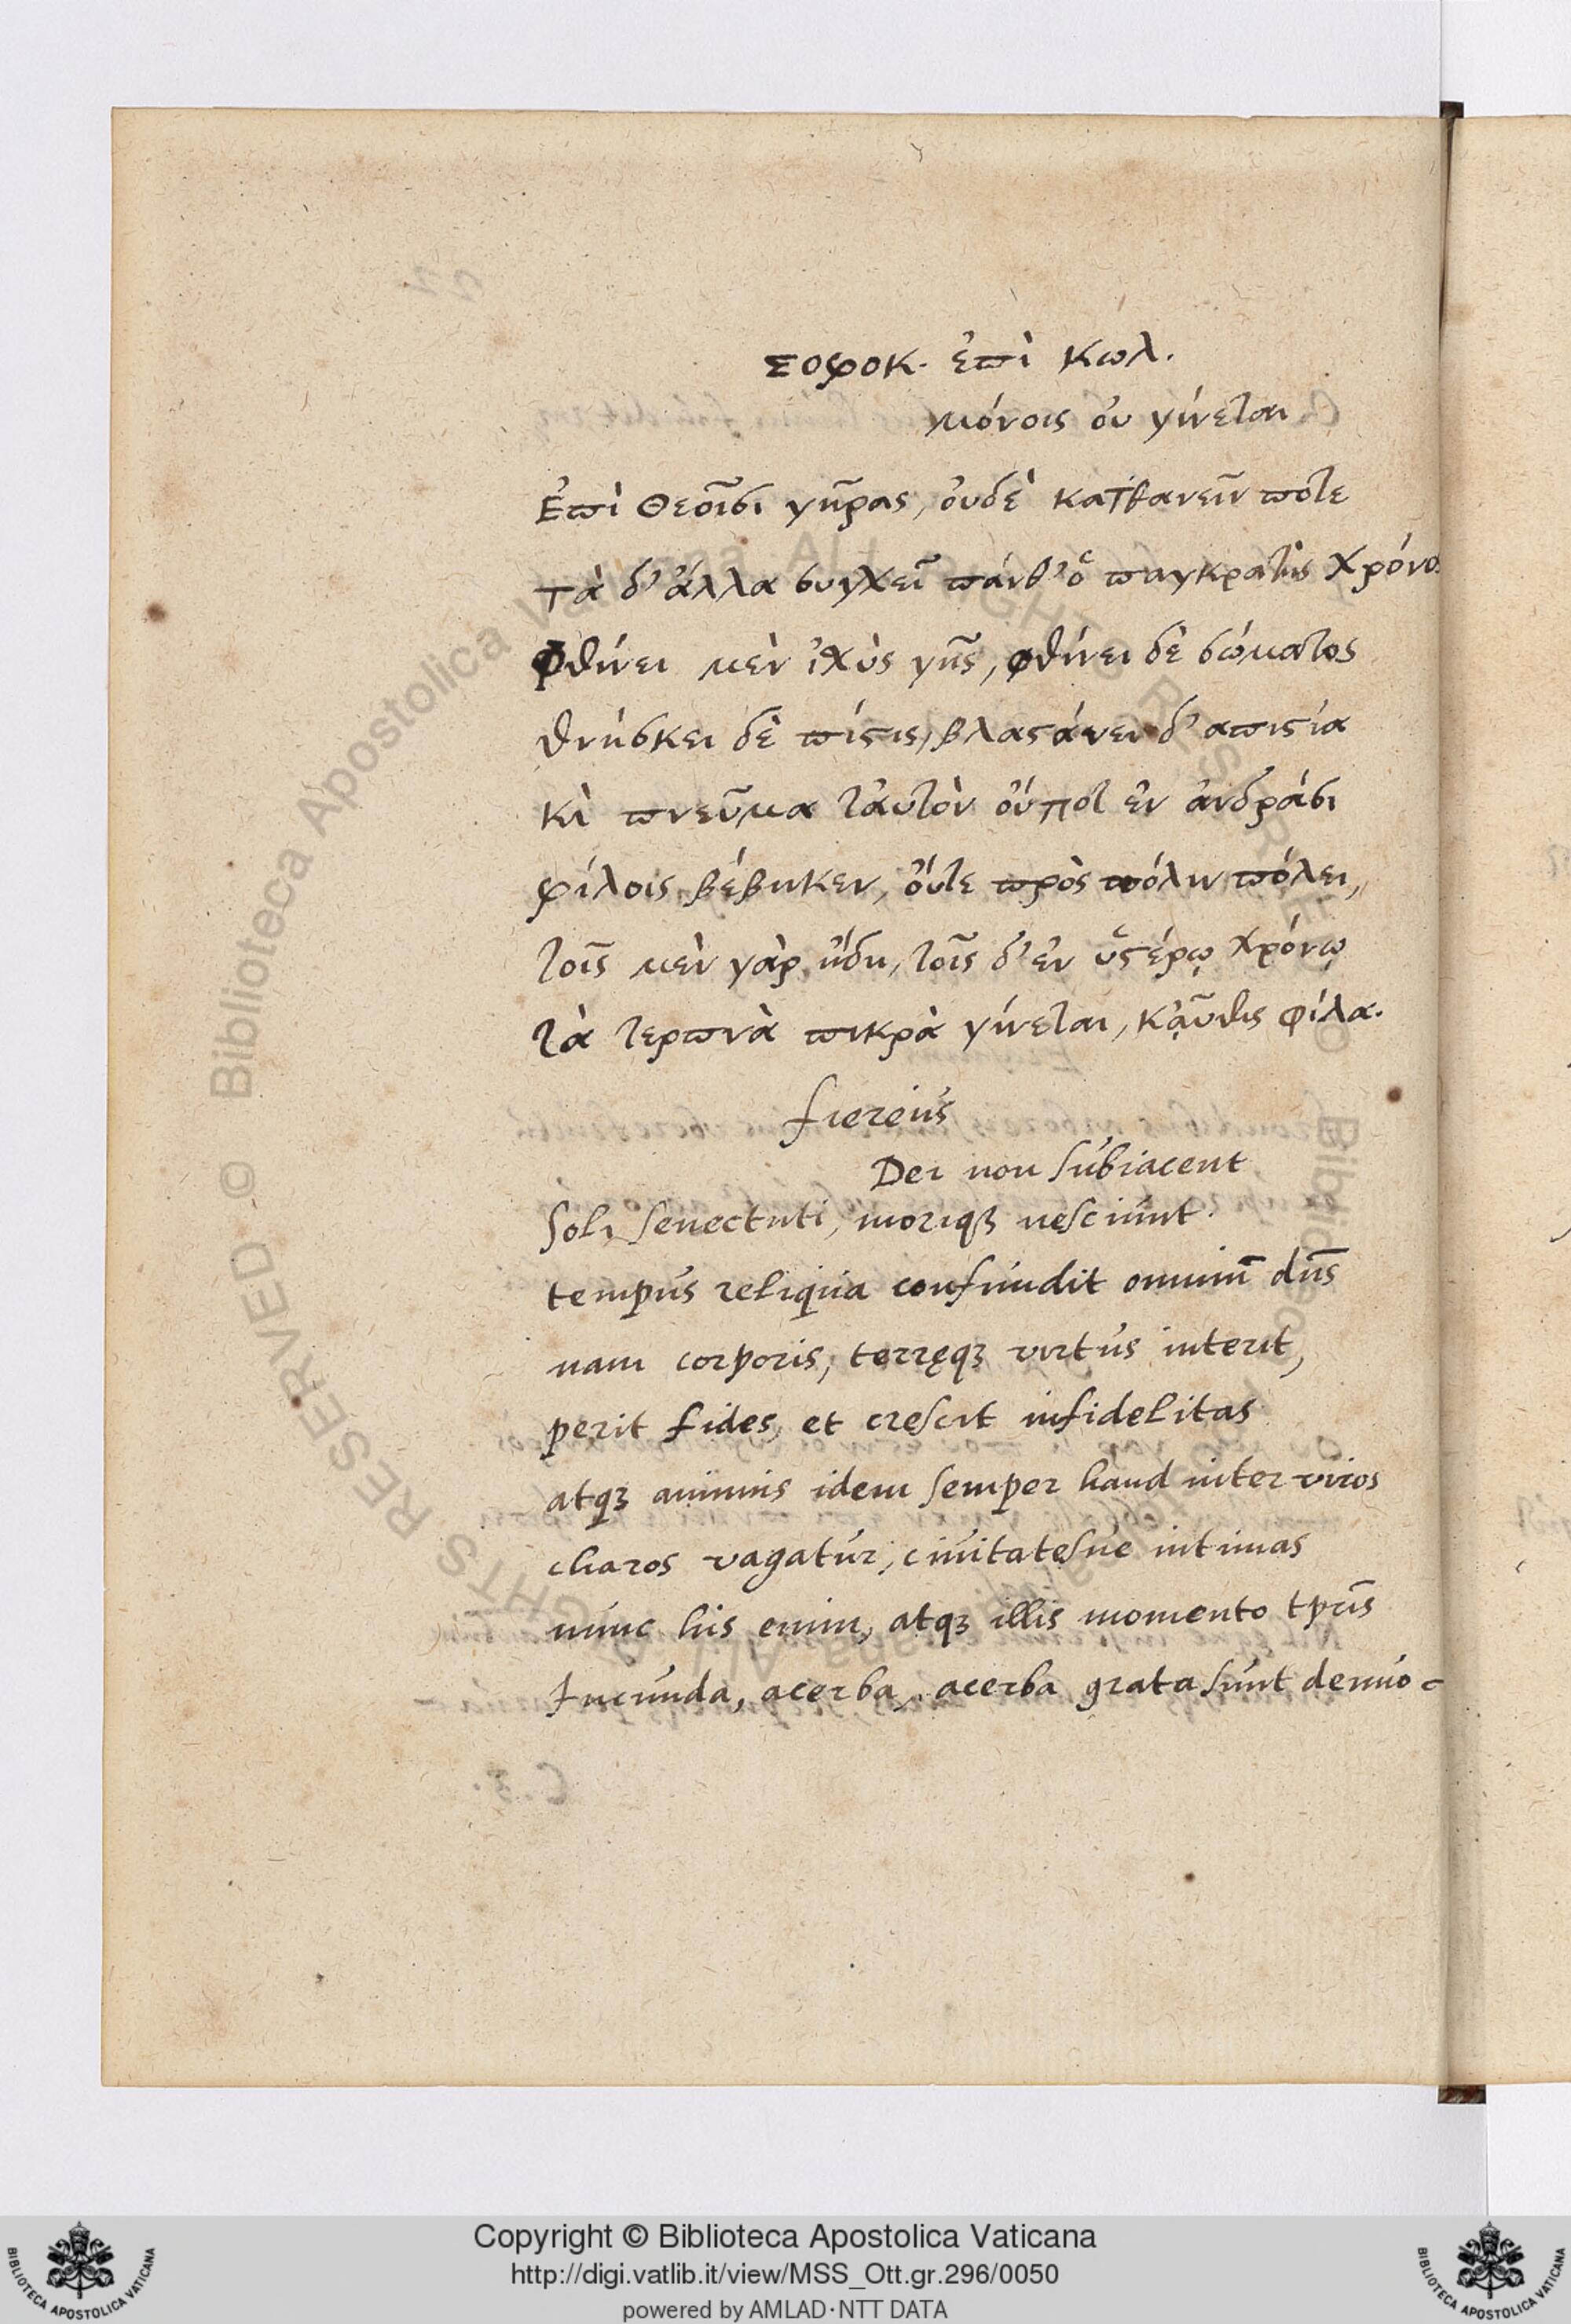 Σοφοκ. ἐπὶ κωλ.
μόνοις οὐ γίνεται
Ἐπὶ θεοῖσι γῆρας, οὐδὲ κατθανεῖν ποτε
τὰ δ' ἄλλα συγχεῖ πάνθ' ὁ παγκρατὴς χρόνο
Φθίνει μὲν ἰχὺς γῆς, φθίνει δὲ σώματος
θνήσκει δὲ πίϛις, βλαϛάνει δ' απιϛία
κὶ πνεῦμα ταυτὸν οὔποτ ἐν ἀνδράσι
φίλοις βέβηκεν, οὔτε πρὸς πόλιν πόλει,
τοῖς μὲν γὰρ ἤδη, τοῖς δ' ἐν ὑϛέρῳ χρόνῳ
τὰ τερπνὰ πικρὰ γίνεται, κᾳῦθις φίλα.
Dei non subiacent
Soli senectuti, moriqꝫ nesciunt.
tempus reliqua confundit omniū dn̄s
nam corporis, terręqꝫ virtus interit,
perit fides, et crescit infidelitas
atqꝫ animis idem semper haud inter viros
charos vagatur, ciuitatesue intimas
nunc his enim, atqꝫ illis momento tp̄ris
Iucunda, acerba, acerba grata sunt denuo
Biblioteca Apostolica Vaticana ALL RIGHTS RESERVED ©
Copyright © Biblioteca Apostolica Vaticana
http://digi.vatlib.it/view/MSS_Ott.gr.296/0050
powered by AMLAD·NTT DATA
BIBLIOTECA APOSTOLICA VATICANA
BIBLIOTECA APOSTOLICA VATICANA